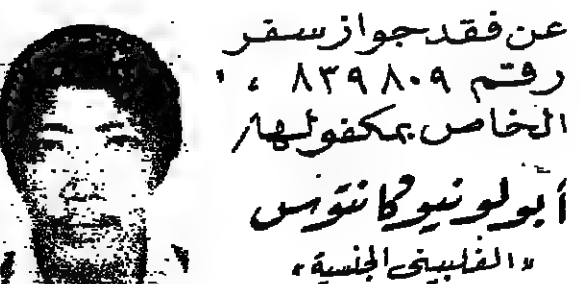 عن فقد جواز سفر
رقم ٨٣٩٨٠٩ ،
الخاص بمكفولها
أبولونيو كانتوس
«الفلبيني الجنسية»